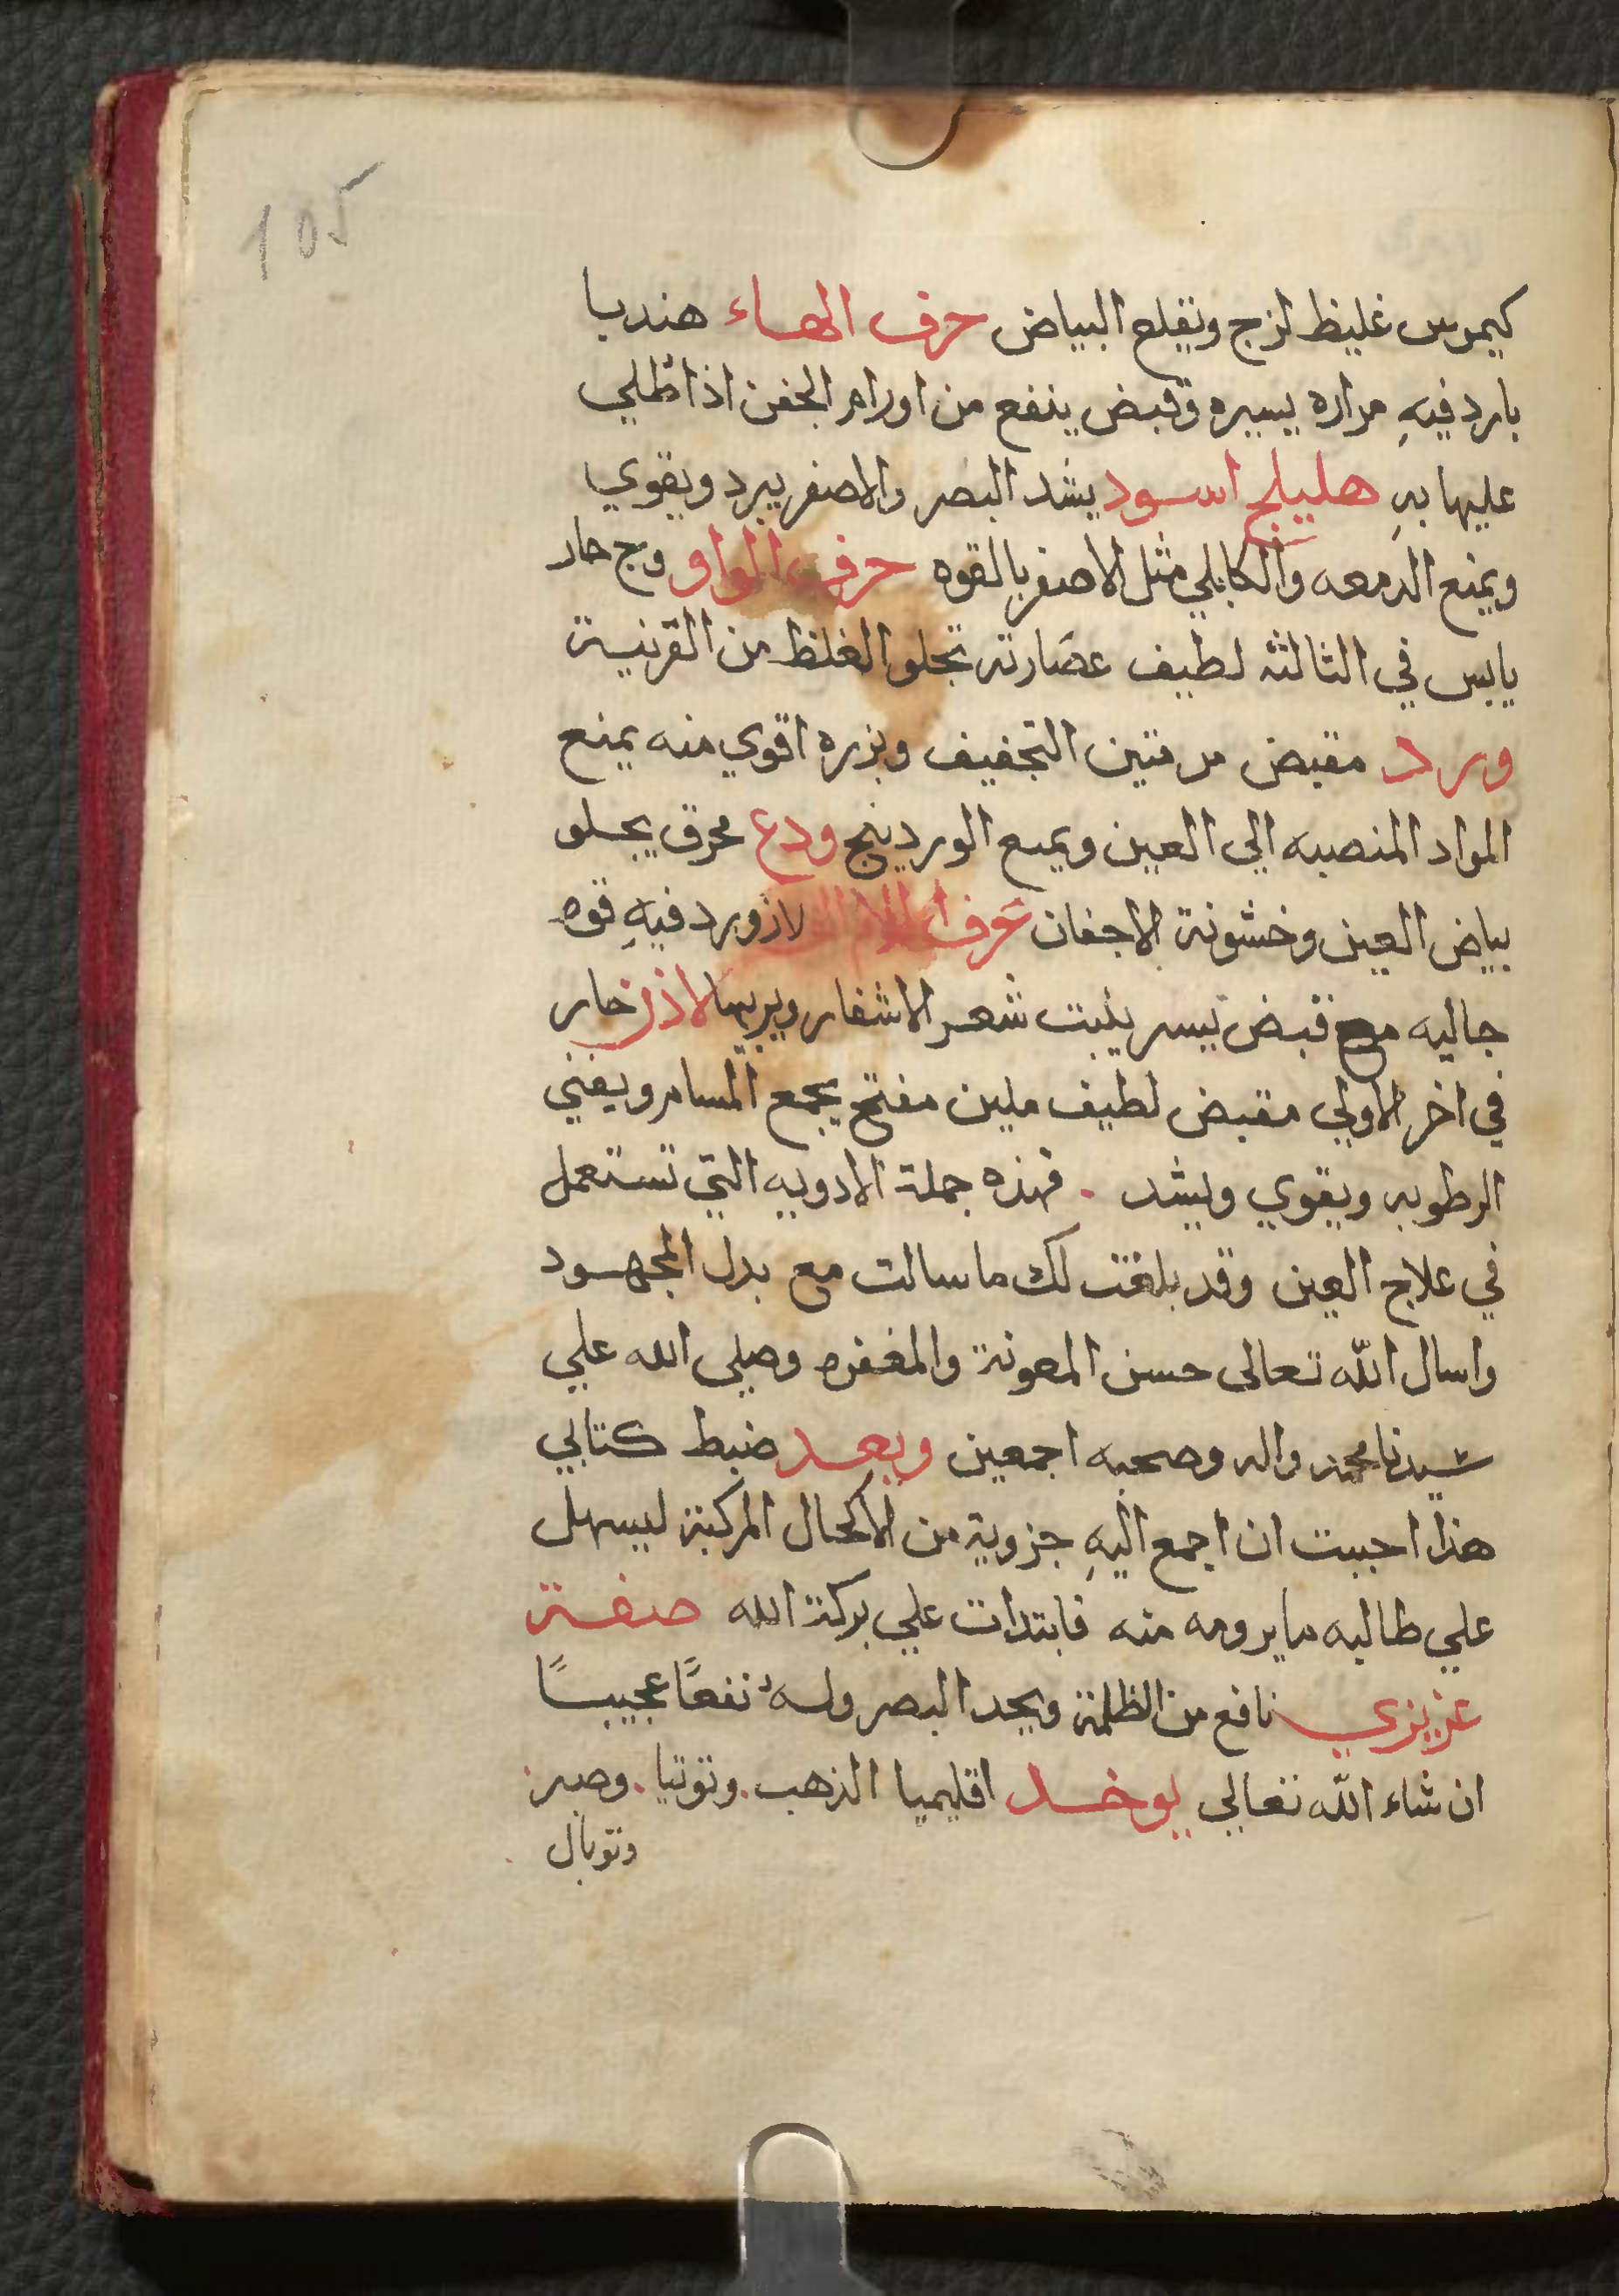 105
كيموس غليظ لزج ونقلع البياض حرف الهاء هندبا
بارد فيهِ مراره يسيره وقبض ينفع من اورام الجفن اذا طلي
عليها بهِ هليلج اسود يشد البصر والاصفر يبرد ويقوي
ويمنع الدمعه والكابلي مثل الاصفر بالقوه حرف الواو وج حار
يابس في الثالثه لطيف عصارته تجلو الغلظ من القرنية
ورد مقبض مر متين التجفيف وبزره اقوي منه يمنع
المواد المنصبه الي العين ويمنع الوردينج ودع محرق يجلو
بياض العين وخشونة الاجفان عرف اللام الف لازورد فيهِ قوه
جاليه مع قبض يسير ينبت شعر الاشفار ويربيها لاذن حار
في اخر الاولي مقبض لطيف ملين مفتح يجمع المسام ويفني
الرطوبه ويقوي ويشد . فهذه جملة الادويه التي تستعمل
في علاج العين وقد بلغت لك ما سالت مع بدل المجهود
واسال اللّه تعالى حسن المعونة والمغفره وصلى الله علي
سيدنا محمد واله وصحبه اجمعين وبعد ضبط كتابي
هذا احببت ان اجمع اليهِ جزوية من الاكحال المركبة ليسهل
علي طالبه ما يرومه منه فابتدات علي بركة الله صفة
عزيزي نافع من الظلمة ويحد البصر وله نفعًا عجيبًا
ان شاء اللّه تعالي يوخد اقليميا الذهب . وتوتيا . وصبر .
وتوبال